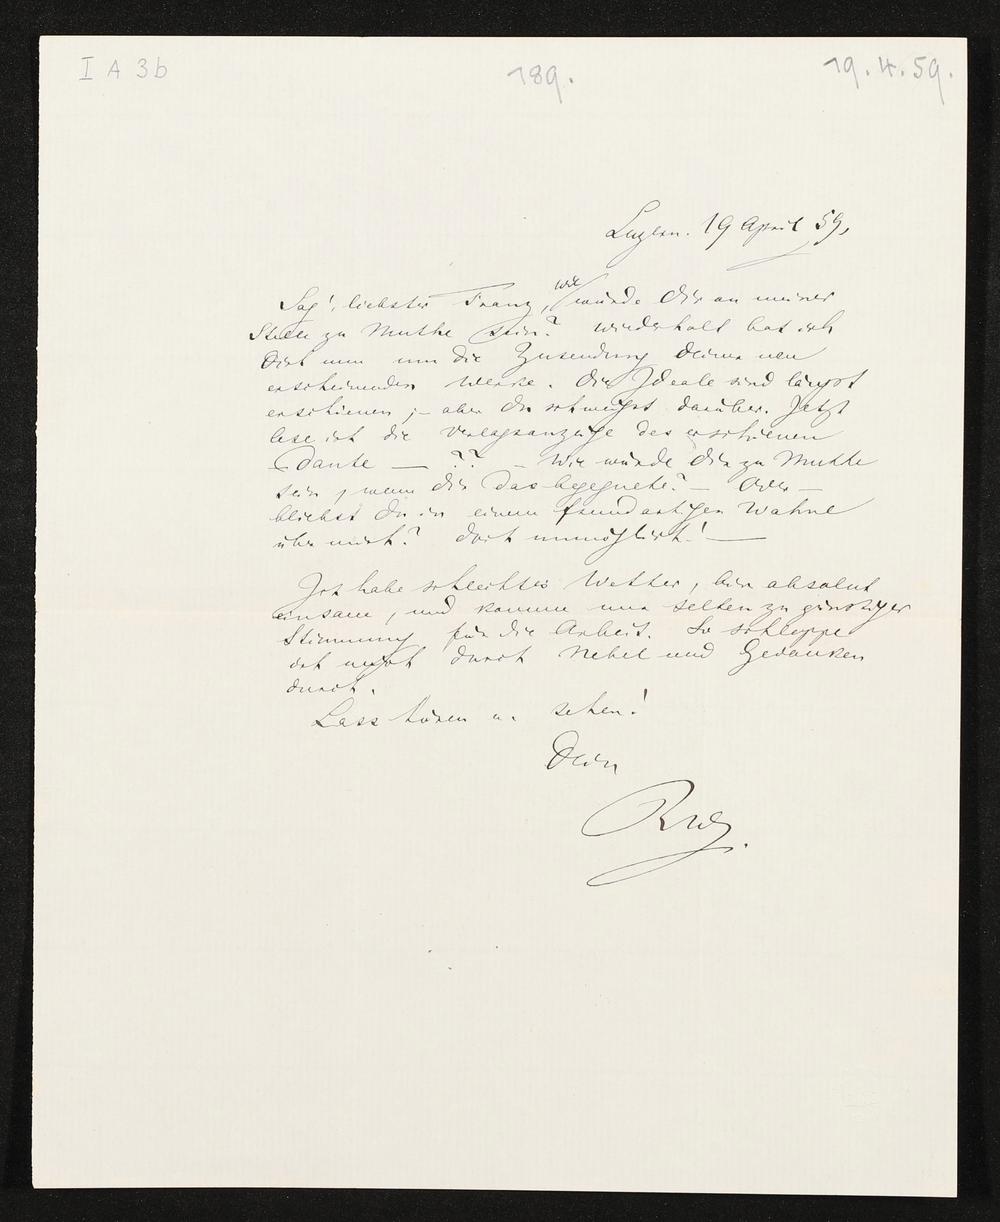 I A 3b
189.
19.4.59.
Luzern. 19 April 59,
Sag', liebster Franz, wie würde Dir an meiner
Stelle zu Muthe sein? Wiederholt bat ich
Dich nun um die Zusendung Deiner neu
erscheinenden Werke. Die Ideale sind längst
erschienen; – aber Du schweigst darüber. Jetzt
lese ich die Verlagsanzeige des erschienen
Dante — ?? – Wie würde Dir zu Muthe
sein, wenn dir das begegnete? – Oder –
bliebst Du in einem fremdartigen Wahne
über mich? Doch unmöglich! —
Ich habe schlechtes Wetter, bin absolut
einsam, und komme nur selten zu günstiger
Stimmung für die Arbeit. So schleppe
ich mich durch Nebel und Gedanken
durch.
Lass hören u. sehen!
Dein
RW.